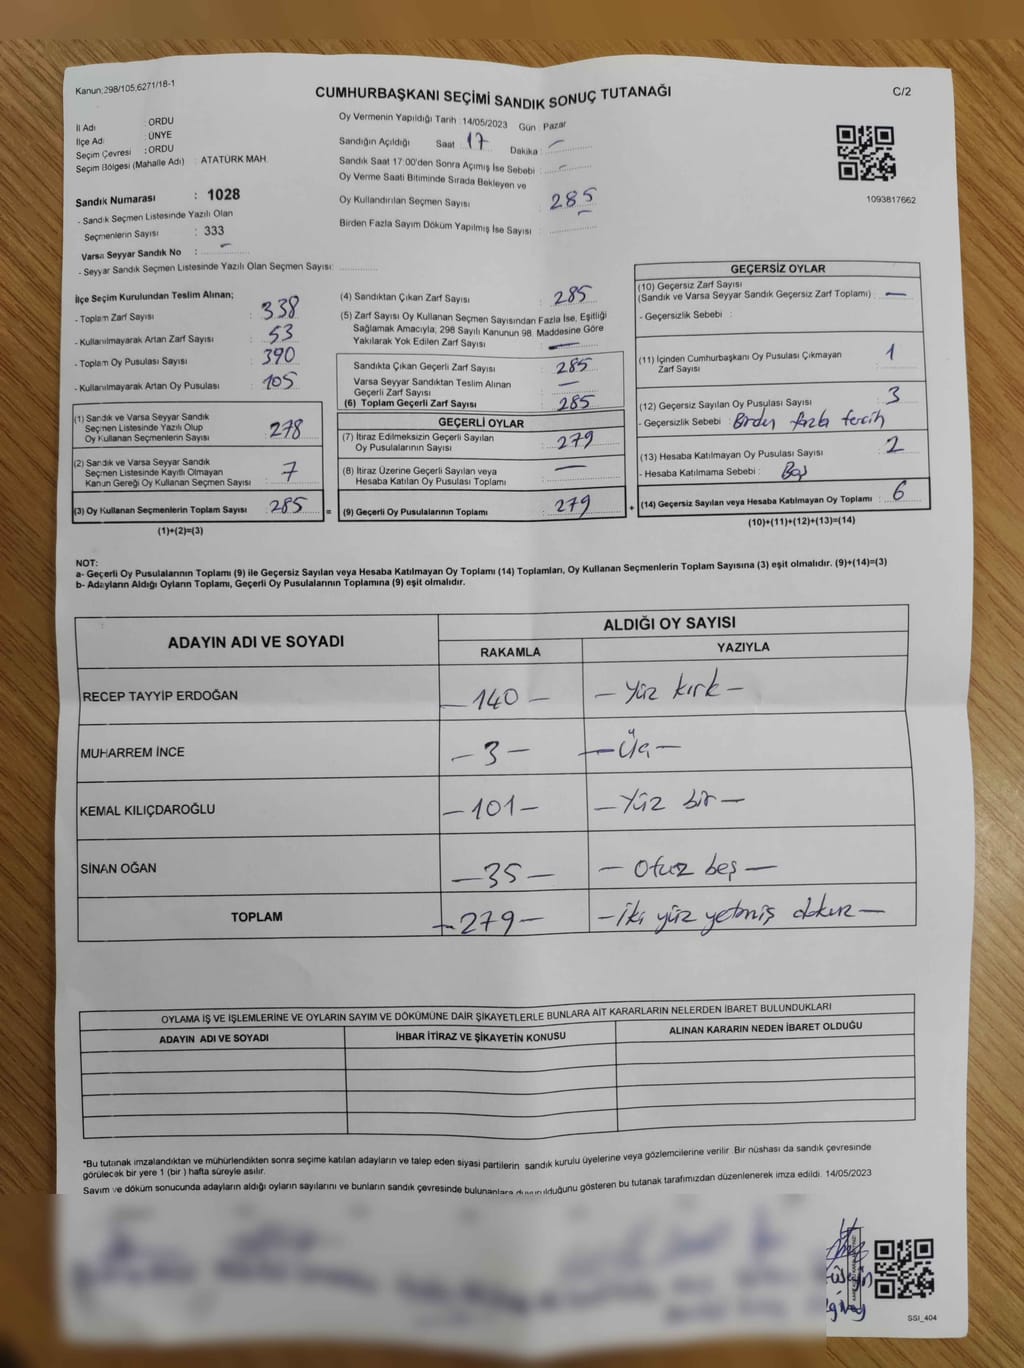 Kanun;298/105,6271/18-1
CUMHURBAŞKANI SEÇİMİ SANDIK SONUÇ TUTANAĞI
C/2
İl Adı : ORDU
İlçe Adı : ÜNYE
Seçim Çevresi : ORDU
Seçim Bölgesi (Mahalle Adı) : ATATÜRK MAH.
Sandık Numarası : 1028
- Sandık Seçmen Listesinde Yazılı Olan
Seçmenlerin Sayısı : 333
Varsa Seyyar Sandık No : -
- Seyyar Sandık Seçmen Listesinde Yazılı Olan Seçmen Sayısı:
Oy Vermenin Yapıldığı Tarih :14/05/2023 Gün : Pazar
Sandığın Açıldığı Saat : 17 Dakika : -
Sandık Saat 17:00'den Sonra Açımış İse Sebebi : -
Oy Verme Saati Bitiminde Sırada Bekleyen ve
Oy Kullandırılan Seçmen Sayısı : 285
Birden Fazla Sayım Döküm Yapılmış İse Sayısı : -
1093817662
İlçe Seçim Kurulundan Teslim Alınan;
- Toplam Zarf Sayısı : 338
- Kullanılmayarak Artan Zarf Sayısı : 53
- Toplam Oy Pusulası Sayısı : 390
- Kullanılmayarak Artan Oy Pusulası : 105
(1) Sandık ve Varsa Seyyar Sandık
Seçmen Listesinde Yazılı Olup
Oy Kullanan Seçmenlerin Sayısı : 278
(2) Sandık ve Varsa Seyyar Sandık
Seçmen Listesinde Kayıtlı Olmayan
Kanun Gereği Oy Kullanan Seçmen Sayısı : 7
(3) Oy Kullanan Seçmenlerin Toplam Sayısı : 285 =
(1)+(2)=(3)
(4) Sandıktan Çıkan Zarf Sayısı : 285
(5) Zarf Sayısı Oy Kullanan Seçmen Sayısından Fazla İse, Eşitliği
Sağlamak Amacıyla; 298 Sayılı Kanunun 98. Maddesine Göre
Yakılarak Yok Edilen Zarf Sayısı : —
Sandıkta Çıkan Geçerli Zarf Sayısı : 285
Varsa Seyyar Sandıktan Teslim Alınan
Geçerli Zarf Sayısı : —
(6) Toplam Geçerli Zarf Sayısı : 285
GEÇERLİ OYLAR
(7) İtiraz Edilmeksizin Geçerli Sayılan
Oy Pusulalarının Sayısı : 279
(8) İtiraz Üzerine Geçerli Sayılan veya
Hesaba Katılan Oy Pusulası Toplamı : —
(9) Geçerli Oy Pusulalarının Toplamı : 279 +
GEÇERSİZ OYLAR
(10) Geçersiz Zarf Sayısı
(Sandık ve Varsa Seyyar Sandık Geçersiz Zarf Toplamı) : —
- Geçersizlik Sebebi :
(11) İçinden Cumhurbaşkanı Oy Pusulası Çıkmayan
Zarf Sayısı : 1
(12) Geçersiz Sayılan Oy Pusulası Sayısı : 3
- Geçersizlik Sebebi : Birden fazla tercih
(13) Hesaba Katılmayan Oy Pusulası Sayısı : 2
- Hesaba Katılmama Sebebi : Boş
(14) Geçersiz Sayılan veya Hesaba Katılmayan Oy Toplamı : 6
(10)+(11)+(12)+(13)=(14)
NOT:
a- Geçerli Oy Pusulalarının Toplamı (9) ile Geçersiz Sayılan veya Hesaba Katılmayan Oy Toplamı (14) Toplamları, Oy Kullanan Seçmenlerin Toplam Sayısına (3) eşit olmalıdır. (9)+(14)=(3)
b- Adayların Aldığı Oyların Toplamı, Geçerli Oy Pusulalarının Toplamına (9) eşit olmalıdır.
ADAYIN ADI VE SOYADI
ALDIĞI OY SAYISI
RAKAMLA YAZIYLA
RECEP TAYYİP ERDOĞAN — 140 — — Yüz kırk —
MUHARREM İNCE — 3 — — Üç —
KEMAL KILIÇDAROĞLU — 101 — — Yüz bir —
SİNAN OĞAN — 35 — — Otuz beş —
TOPLAM — 279 — — İki yüz yetmiş dokuz —
OYLAMA İŞ VE İŞLEMLERİNE VE OYLARIN SAYIM VE DÖKÜMÜNE DAİR ŞİKAYETLERLE BUNLARA AİT KARARLARIN NELERDEN İBARET BULUNDUKLARI
ADAYIN ADI VE SOYADI İHBAR İTİRAZ VE ŞİKAYETİN KONUSU ALINAN KARARIN NEDEN İBARET OLDUĞU
*Bu tutanak imzalandıktan ve mühürlendikten sonra seçime katılan adayların ve talep eden siyasi partilerin sandık kurulu üyelerine veya gözlemcilerine verilir. Bir nüshası da sandık çevresinde
görülecek bir yere 1 (bir ) hafta süreyle asılır.
Sayım ve döküm sonucunda adayların aldığı oyların sayılarını ve bunların sandık çevresinde bulunanlara duyurulduğunu gösteren bu tutanak tarafımızdan düzenlenerek imza edildi. 14/05/2023
SSI_404